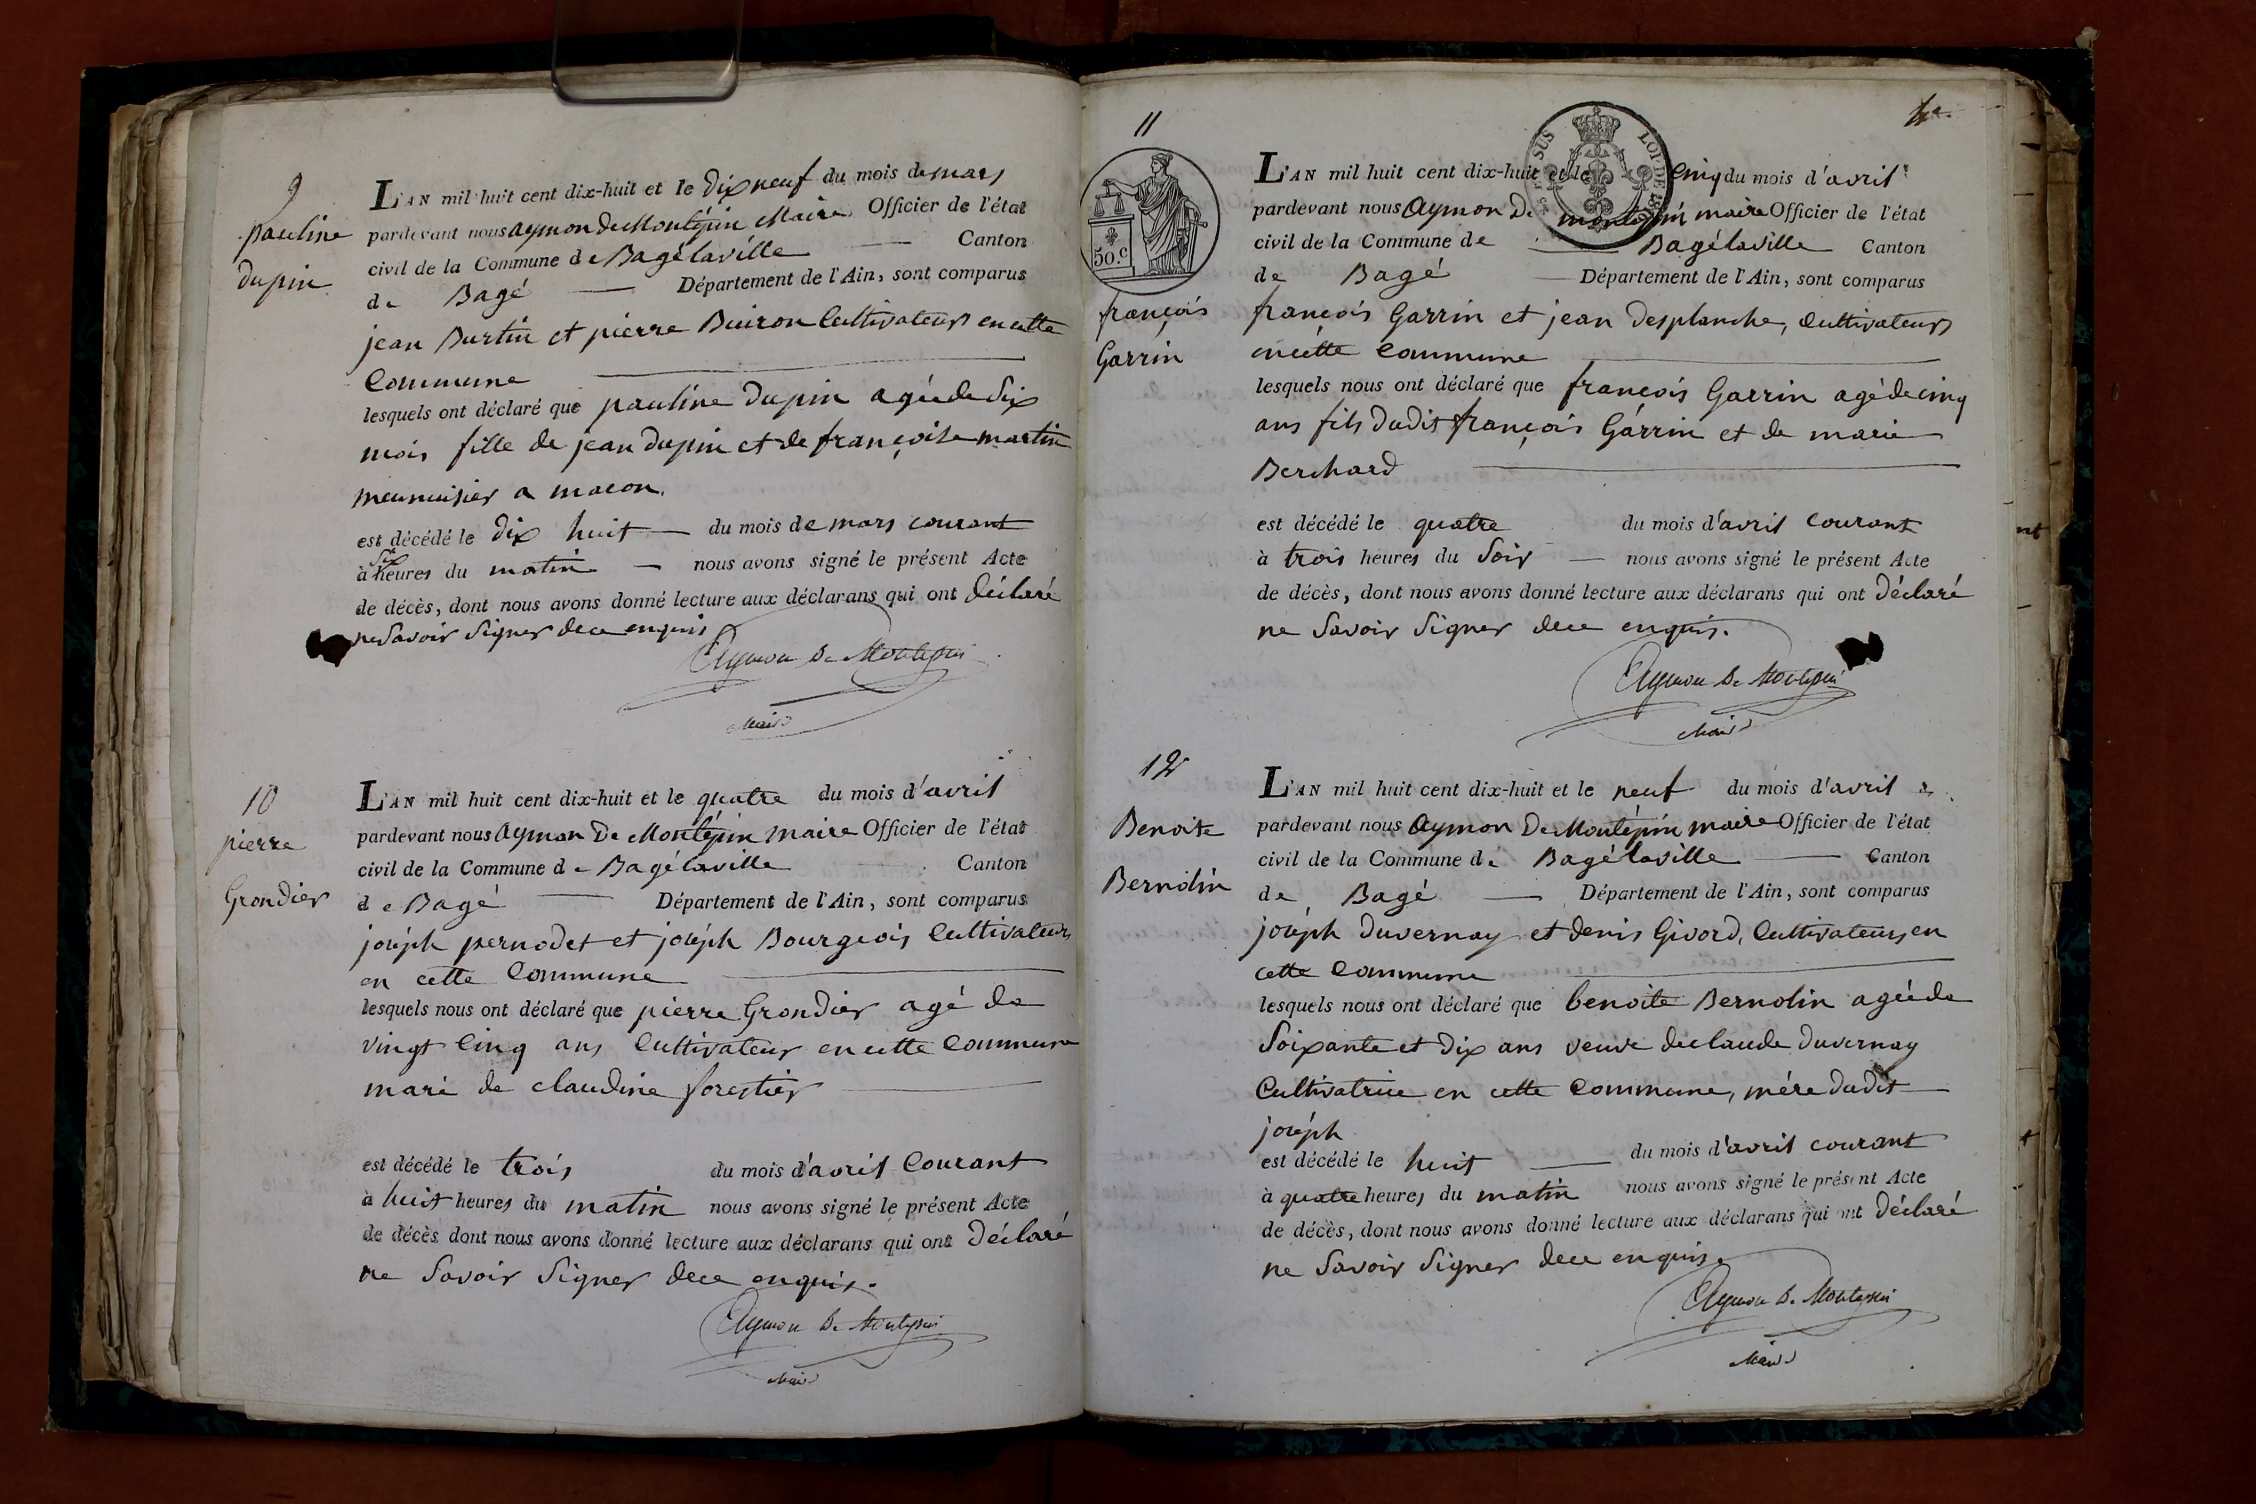 9
pauline
dupin
L'AN mil huit cent dix-huit et le dix neuf du mois de mars
pardevant nous aymon de Montépin Maire Officier de l'état
civil de la Commune de Bagélaville Canton
de Bagé Département de l'Ain, sont comparus
jean Burtin et pierre Buiron Cultivateurs en cette
Commune
lesquels ont déclaré que pauline dupin agée de Six
mois fille de jean dupin et de françoise martin
menuisier a macon.
est décédé le dix huit du mois de mars courant
six
à heures du matin nous avons signé le présent Acte
de décès, dont nous avons donné lecture aux déclarans qui ont déclaré
ne Savoir Signer de ce enquis
Aymon De Montepin
Maire
10
pierre
Grondier
L'AN mil huit cent dix-huit et le quatre du mois d'avril
pardevant nous Aymon De Montépin maire Officier de l'état
civil de la Commune de Bagélaville Canton
de Bagé Département de l'Ain, sont comparus
joseph pernodet et joseph Bourgeois Cultivateurs
en cette Commune
lesquels nous ont déclaré que pierre Grondier agé de
vingt Cinq ans Cultivateur en cette Commune
mari de claudine forestier
est décédé le trois du mois d'avril Courant
à huit heures du matin nous avons signé le présent Acte
de décès dont nous avons donné lecture aux déclarans qui ont déclaré
ne Savoir Signer de ce enquis.
Aymon De Montepin
Maire
11
50.c
SUS
LOI DE
françois
Garrin
L'AN mil huit cent dix-huit et le Cinq du mois d'avril
pardevant nous Aymon De montépin maire Officier de l'état
civil de la Commune de Bagélaville Canton
de Bagé Département de l'Ain, sont comparus
françois Garrin et jean desplanche, Cultivateurs
en cette Commune
lesquels nous ont déclaré que françois Garrin agé de cinq
ans fils dudit françois Garrin et de marie
Berchard
est décédé le quatre du mois d'avril Courant
à trois heures du Soir nous avons signé le présent Acte
de décès, dont nous avons donné lecture aux déclarans qui ont déclaré
ne Savoir Signer de ce enquis.
Aymon De Montepin
Maire
12
Benoite
Bernolin
L'AN mil huit cent dix-huit et le neuf du mois d'avril
pardevant nous Aymon De Montépin maire Officier de l'état
civil de la Commune de Bagélaville Canton
de Bagé Département de l'Ain, sont comparus
joseph duvernay et denis Givord, Cultivateurs en
cette Commune
lesquels nous ont déclaré que benoite Bernolin agée de
Soixante et dix ans veuve de claude duvernay
Cultivatrice en cette Commune, mére dudit
joseph
est décédé le huit du mois d'avril courant
à quatre heures du matin nous avons signé le présent Acte
de décès, dont nous avons donné lecture aux déclarans qui ont déclaré
ne Savoir Signer de ce enquis.
Aymon De Montepin
Maire